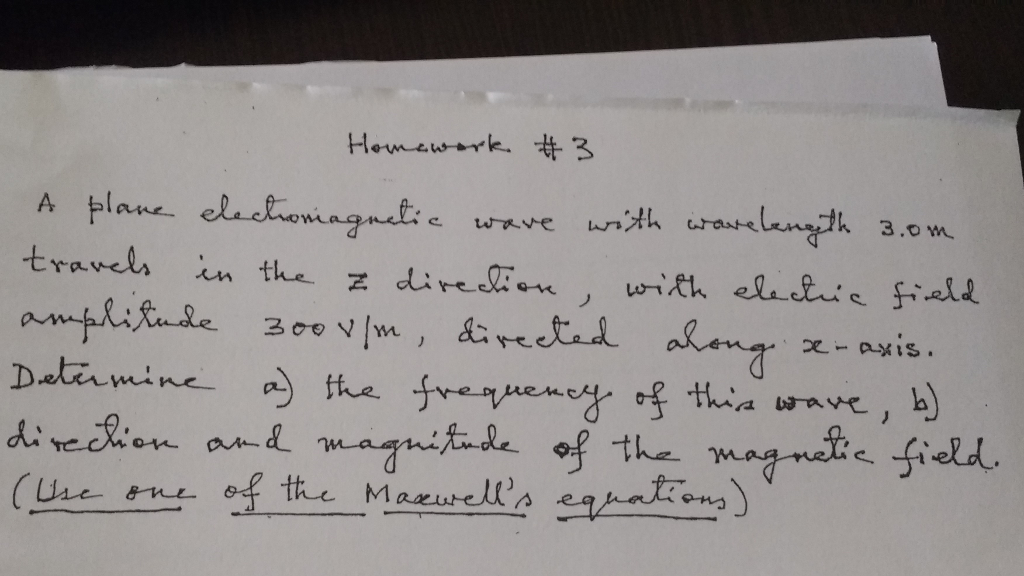 Homework #3
A plane electromagnetic wave with wavelength 3.0m
travels in the z direction, with electric field
amplitude 300 V/m, directed along x-axis.
Determine a) the frequency of this wave, b)
direction and magnitude of the magnetic field.
(Use one of the Maxwell's equations)